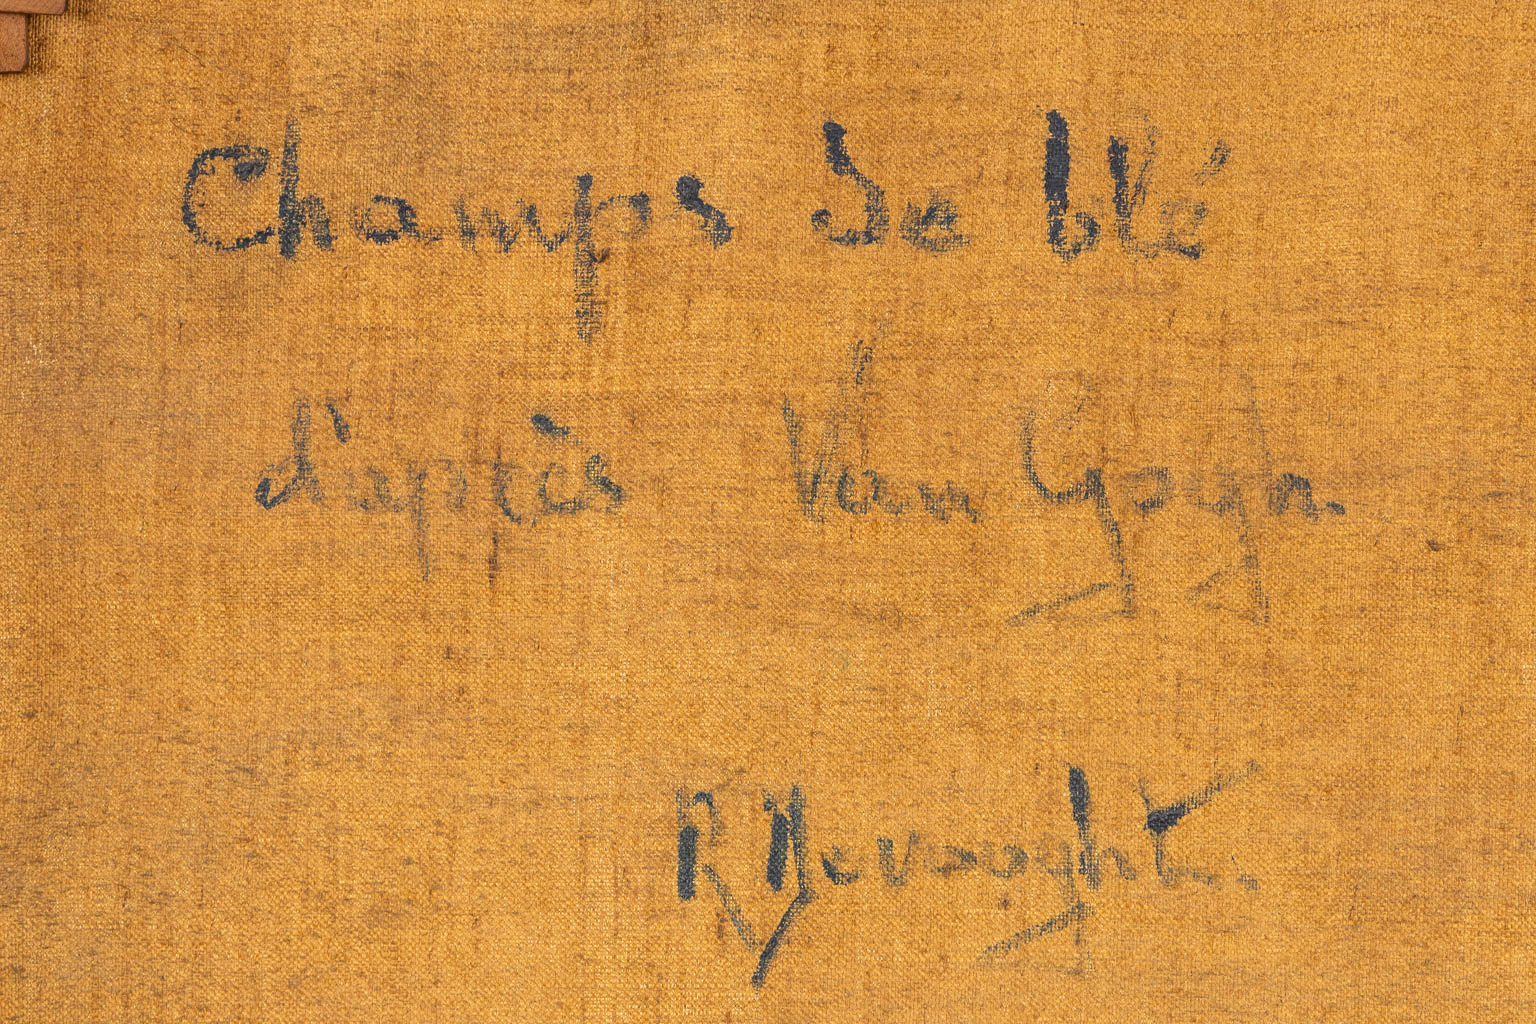 Champs de blé
d'après Van Gogh.
R Nevooght.